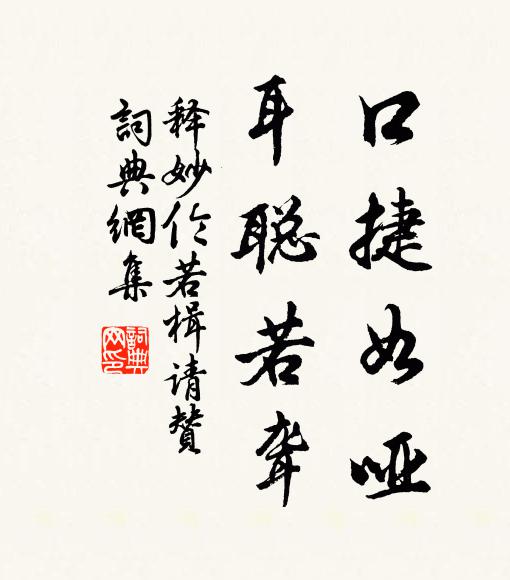 口捷如哑
耳聪若聋
释妙伦若楫请赞
詞典網集
詞典网印